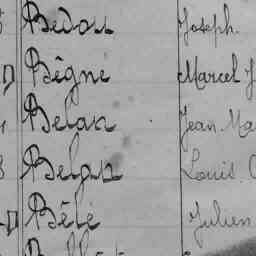 Bedou Joseph.
D Bégné Marcel J
Bélan Jean Ma
Belgn Louis C
D Bélé Julien